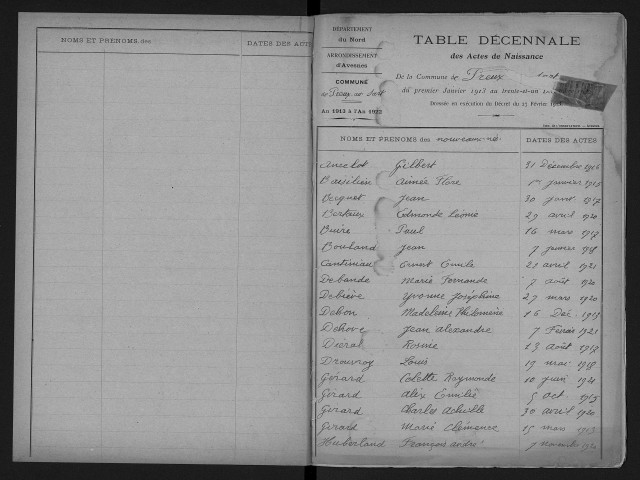 NOMS ET PRENOMS des
DATES DES ACTES
DÉPARTEMENT
du Nord
ARRONDISSEMENT
d'Avesnes
COMMUNE
de Preux-au-Sart
An 1913 à l'An 1922
TABLE DÉCENNALE
des Actes de Naissance
De la Commune de Preux
du premier Janvier 1913 au trente-et-un
Dressée en exécution du Décret du
NOMS ET PRENOMS des nouveaux-nés
DATES DES ACTES
Gilbert 31 Décembre
Basilien Aimée Flore 1er janvier
Becquet Jean 30 août 1917
Berteaux Edmonde Léonie 29 avril 1920
Buire Paul 16 mars 1917
Bouland Jean 7 janvier
Cantineau Ernest Emile 21 avril 1921
Debande Marie Fernande 7 août 1920
Debiève Yvonne Joséphine 27 mars 1920
Dehon Madeleine Philomène 16 Déc.
Dehove Jean Alexandre 7 Février 1921
Rosine 13 août 1917
Drouvroy Louis 19 mai
Gérard Colette Raymonde 10 juin
Gérard Alix Emilie 5 Oct 1913
Gérard Charles Achille 30 avril 1920
Gérard Marie Clémence 15 mars 1913
Huberland François André